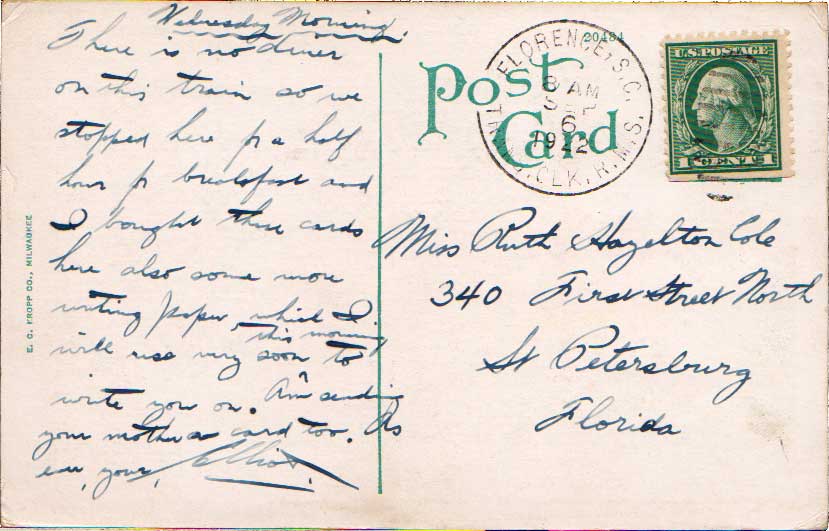 Wednesday Morning.
There is no diner
on this train so we
stopped here for a half
hour for breakfast and
I bought these cards
here also some more
writing paper, which I
this morning
will use very soon to
write you on. Am sending
your mother a card too. As
ever, your, Elliot.
E. C. KROPP CO., MILWAUKEE
POST CARD
20484
FLORENCE, S.C.
8 AM
SEP
6
1922
CLK. R.M.S.
U.S. POSTAGE
1 CENT 1
Miss Ruth Hazelton Cole
340 First Street North
St Petersburg
Florida